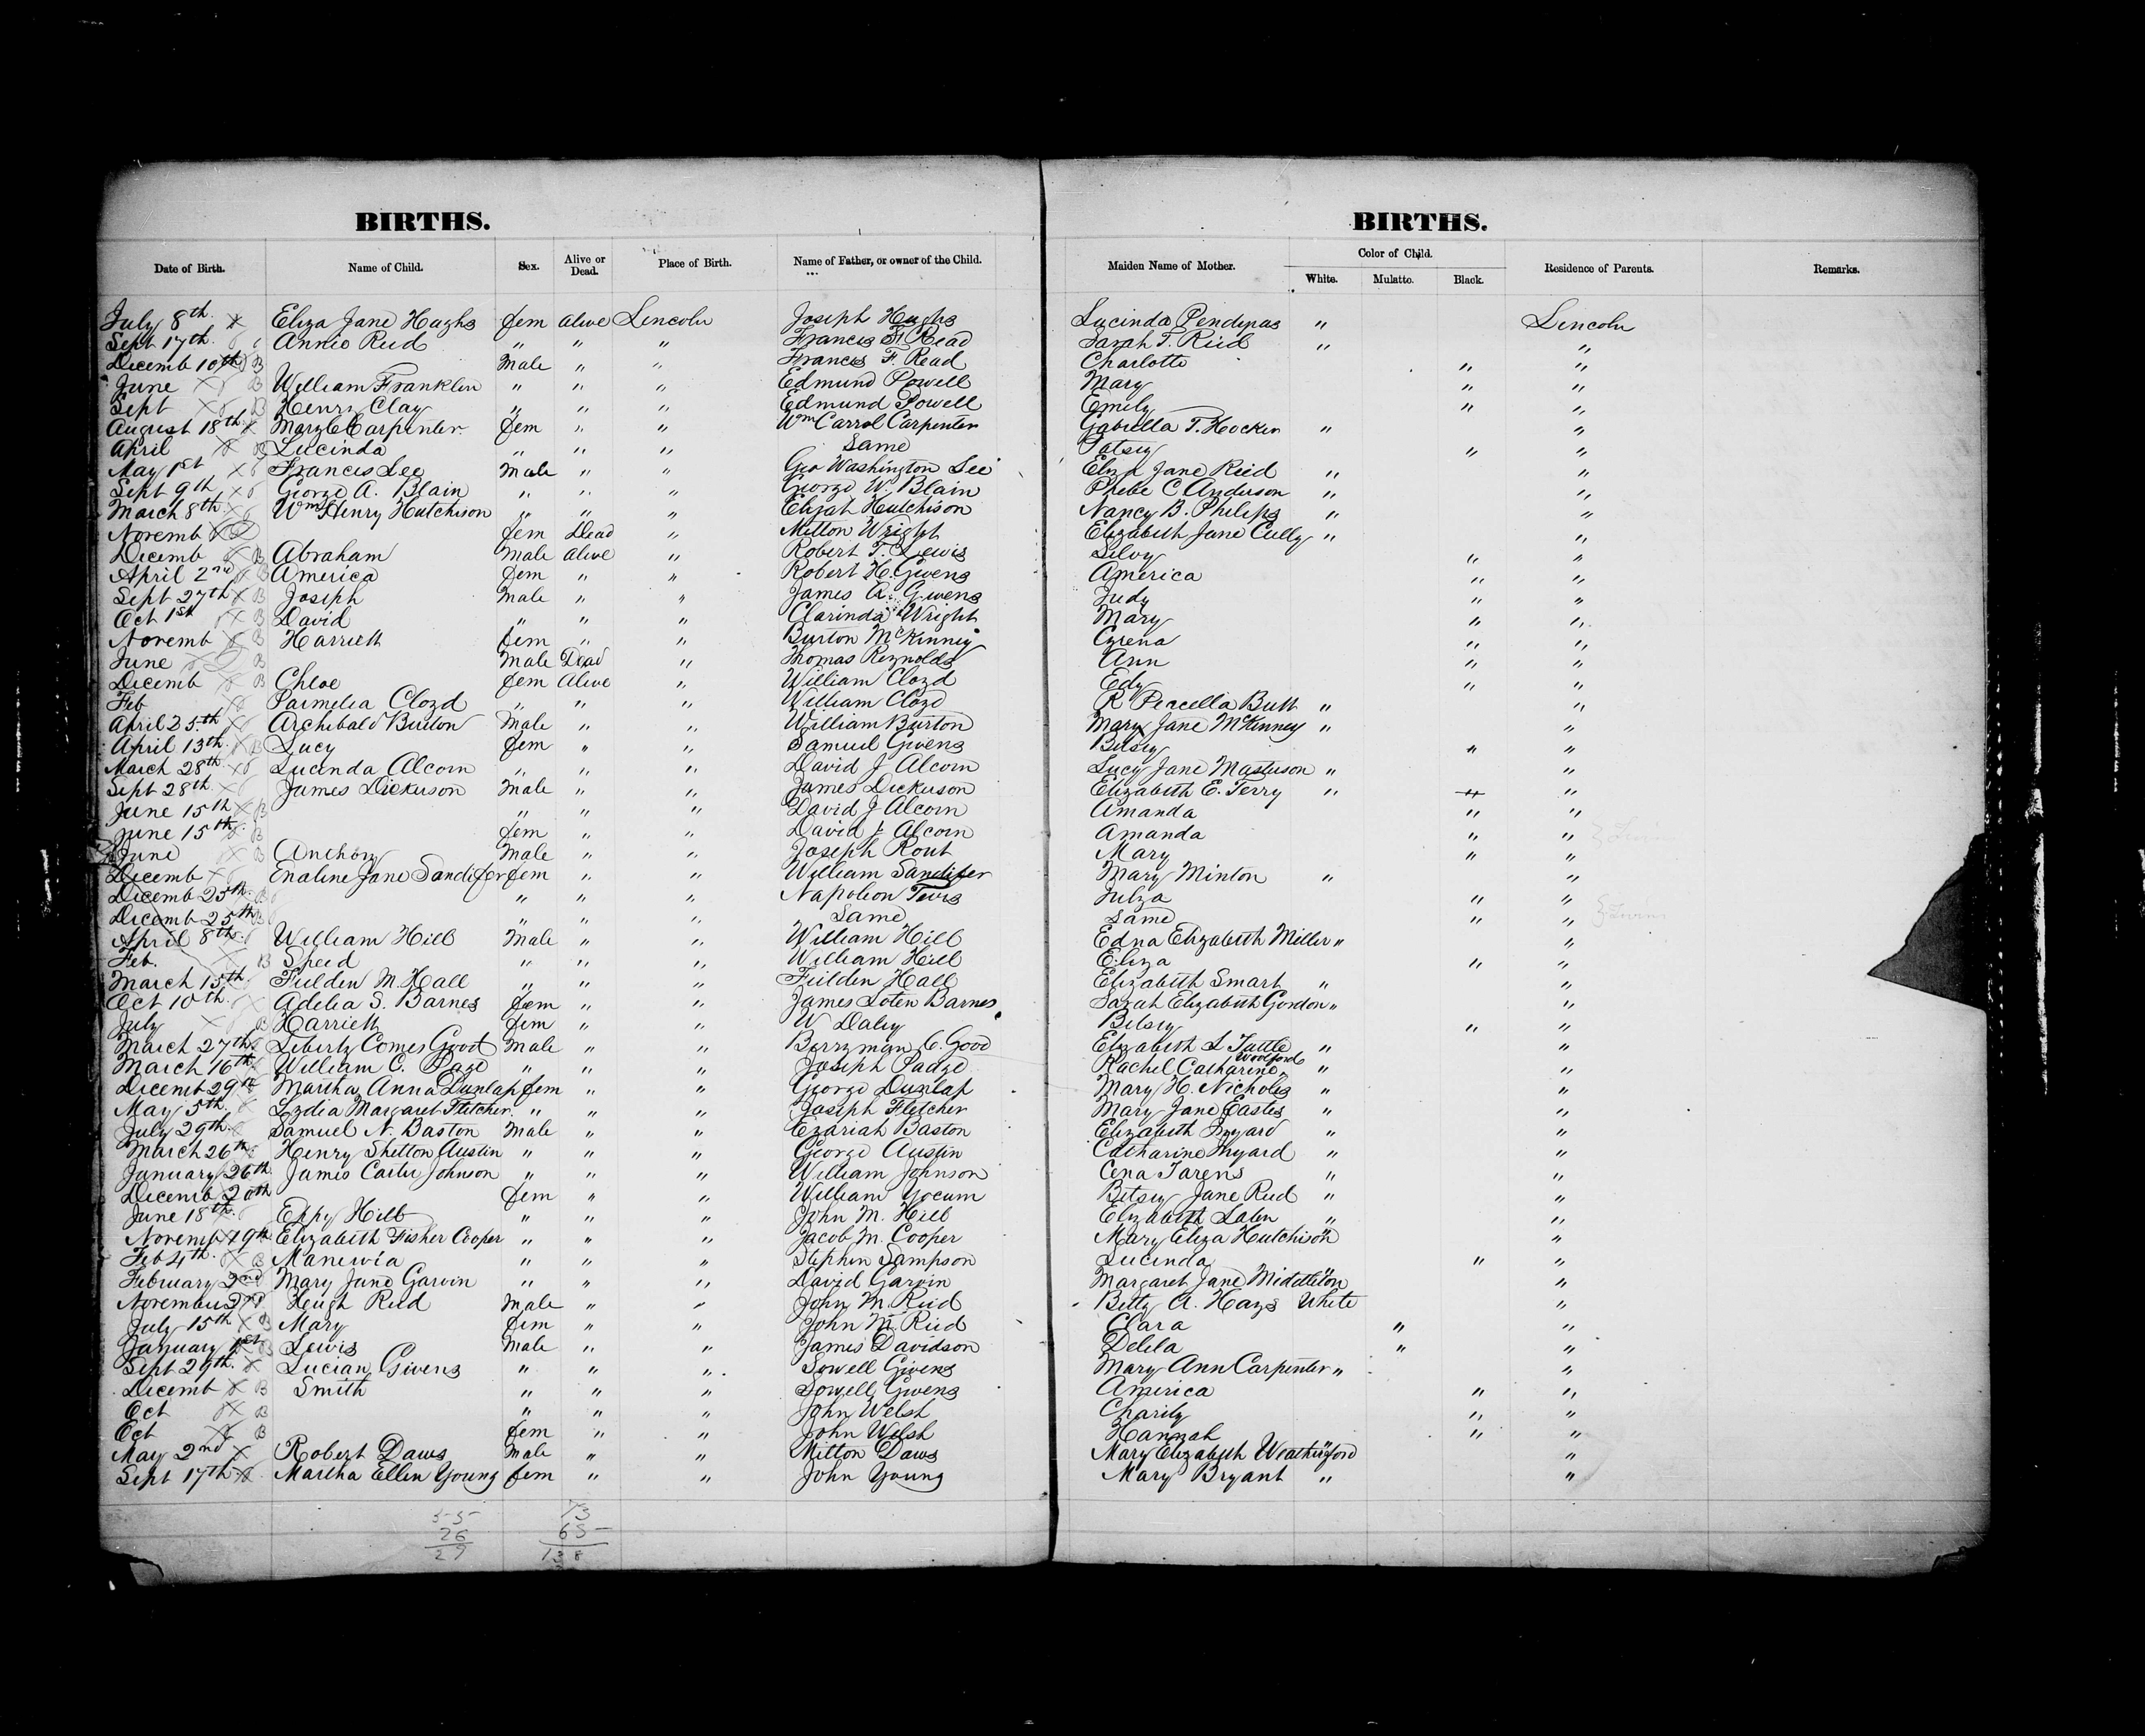 BIRTHS. BIRTHS.
Color of Child.
Date of Birth. Name of Child. Sex. Alive or Dead. Place of Birth. Name of Father, or owner of the Child. Maiden Name of Mother. White. Mulatto. Black. Residence of Parents. Remarks.
July 8th. x Eliza Jane Hughs fem alive Lincoln Joseph Hughs Lucinda " Lincoln
Sept 17th. Annie Reid " " " Francis F. Read Sarah T. Reid " "
Decemb 10th B Male " " Francis F. Read Charlotte " "
June x B William Franklin " " " Edmund Powell Mary " "
Sept x B Henry Clay " " " Edmund Powell Emily " "
August 18th x Mary E Carpenter fem " " Wm Carrol Carpenter Gabriella T. Hocker " "
April x B Lucinda " " " Same Patsy " "
May 1st x Francis Lee Male " " Geo Washington Lee Eliza Jane Reid " "
Sept 9th x George A. Blain " " " George W. Blain Phebe C Anderson " "
March 8th. x Wm Henry Hutchison " " " Elijah Hutchison Nancy B. Philips " "
Novemb x D fem Dead " Milton Wright Elizabeth Jane Cully " "
Decemb x B Abraham Male alive " Robert T. Lewis Silvy " "
April 2nd x B America fem " " Robert H. Givens America " "
Sept 27th x B Joseph Male " " James A. Givens Judy " "
Oct 1st x B David " " " Clarinda Wright Mary " "
Novemb x B Harriett fem " " Burton McKinney Cyrena " "
June x D B Male Dead " Thomas Reynolds Ann " "
Decemb x B Chloe fem Alive " William Cloyd Edy " "
Feb x Parmelia Cloyd " " " William Cloyd R Percella Butt " "
April 25.th x Archibald Burton Male " " William Burton Mary Jane McKinney " "
April 13th. x B Lucy fem " " Samuel Givens Betsey " "
March 28th x Lucinda Alcorn " " " David J Alcorn Lucy Jane Masterson " "
Sept 28th. x James Dickerson Male " " James Dickerson Elizabeth E. Terry " "
June 15th x B " " " David J Alcorn Amanda " "
June 15th. x B fem " " David J Alcorn Amanda " "
June x B Anthony Male " " Joseph Rout Mary " "
Decemb x Enaline Jane Sandifer fem " " William Sandifer Mary Minton " "
Decemb 25th. B " " " Napoleon Tevis Julza " "
Decemb 25th B " " " Same Same " " } Twins
April 8th. x William Hill Male " " William Hill Edna Elizabeth Miller " "
Feb. B Speed " " " William Hill Eliza " "
March 15th Fielden M. Hall " " " Fielden Hall Elizabeth Smart " "
Oct 10th. x Adelia S. Barnes fem " " James Loten Barnes Sarah Elizabeth Gordon " "
July x B Harriett fem " " W Daley Betsey " "
March 27th Liberty Comes Good Male " " Berryman C. Good Elizabeth L Tuttle " "
March 16th William C. Page " " " Joseph Padge Rachel Catharine Woolford " "
Decemb 29th Martha Anna Dunlap fem " " George Dunlap Mary H. Nichols " "
May 5th Lydia Margaret Fletcher. " " " Joseph Fletcher Mary Jane Eastes " "
July 29th Samuel N. Baston Male " " Ezariah Baston Elizabeth Inyard " "
March 26th Henry Shelton Austin " " " George Austin Catharine Inyard " "
January 26th James Carter Johnson " " " William Johnson Cena " "
Decemb 20th fem " " William Yocum Betsey Jane Reid " "
June 18th. Eppy Hill " " " John M. Hill Elizabeth " "
Novemb 19th Elizabeth Fisher Cooper " " " Jacob M. Cooper Mary Eliza Hutchison " "
Feb 4th. x B Manervia " " " Stephen Sampson Lucinda " "
February 2nd Mary Jane Garvin " " " David Garvin Margaret Jane Middleton " "
November Heigh Reid Male " " John M. Reid Betty A. Hays White "
July 15th x B Mary fem " " John M. Reid Clara " "
January 1st B Lewis Male " " James Davidson Delila " "
Sept 29th. x Lucian Givens " " " Sowell Givens Mary Ann Carpenter " "
Decemb x B Smith " " " Sowell Givens America " "
Oct x B " " " John Welsh Charity " "
Oct x B fem " " John Welsh Hannah " "
May 2nd x Robert Daws Male " " Milton Daws Mary Elizabeth Weatherford " "
Sept 17th x Martha Ellen Young fem " " John Young Mary Bryant " "
55 73
26 65
29 138